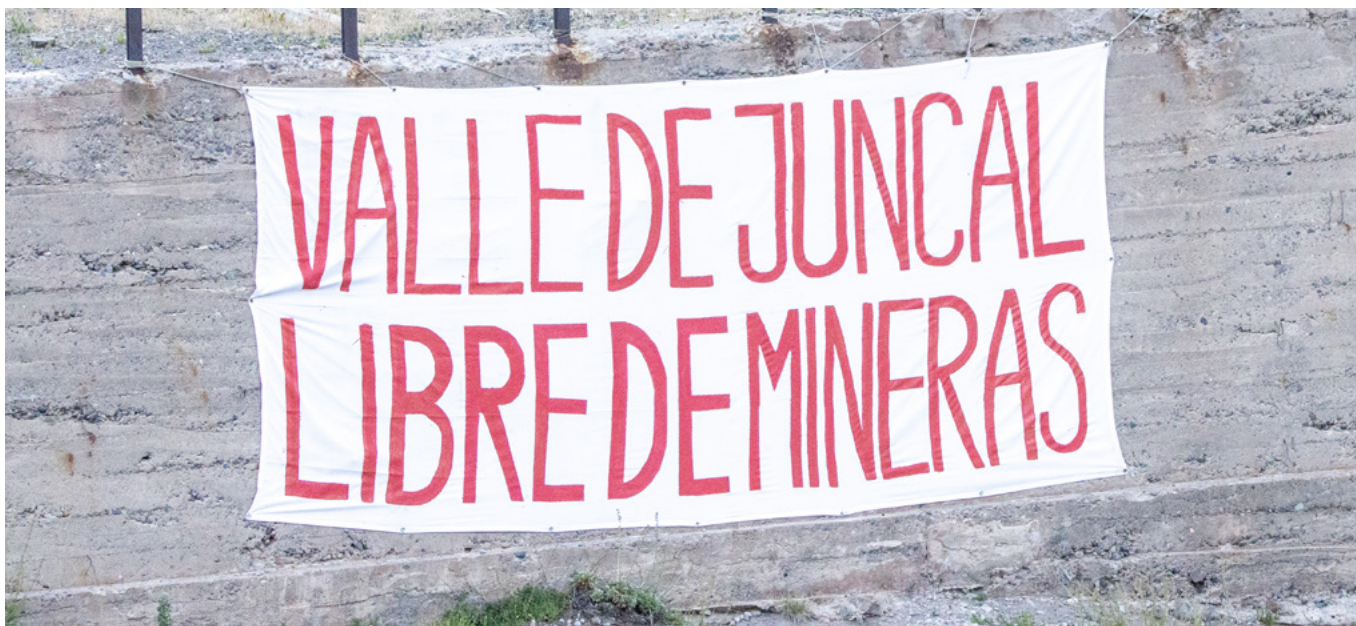 VALLE DE JUNCAL
LIBRE DE MINERAS